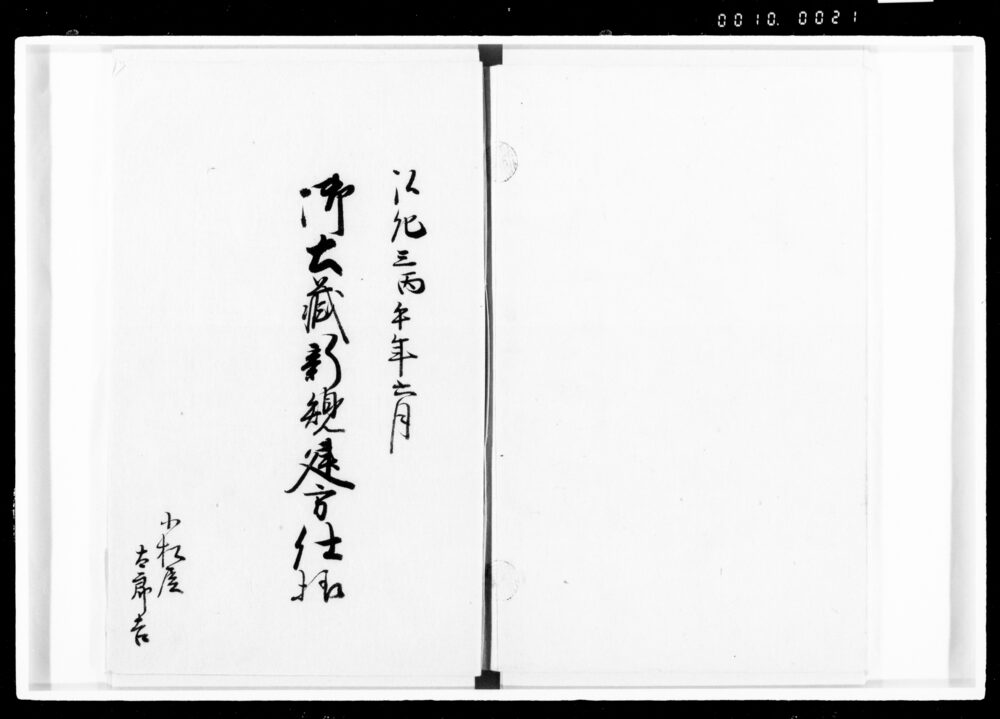 0010. 0021
弘化三丙午年六月
御土藏新規建方仕様
小松屋
太郎吉